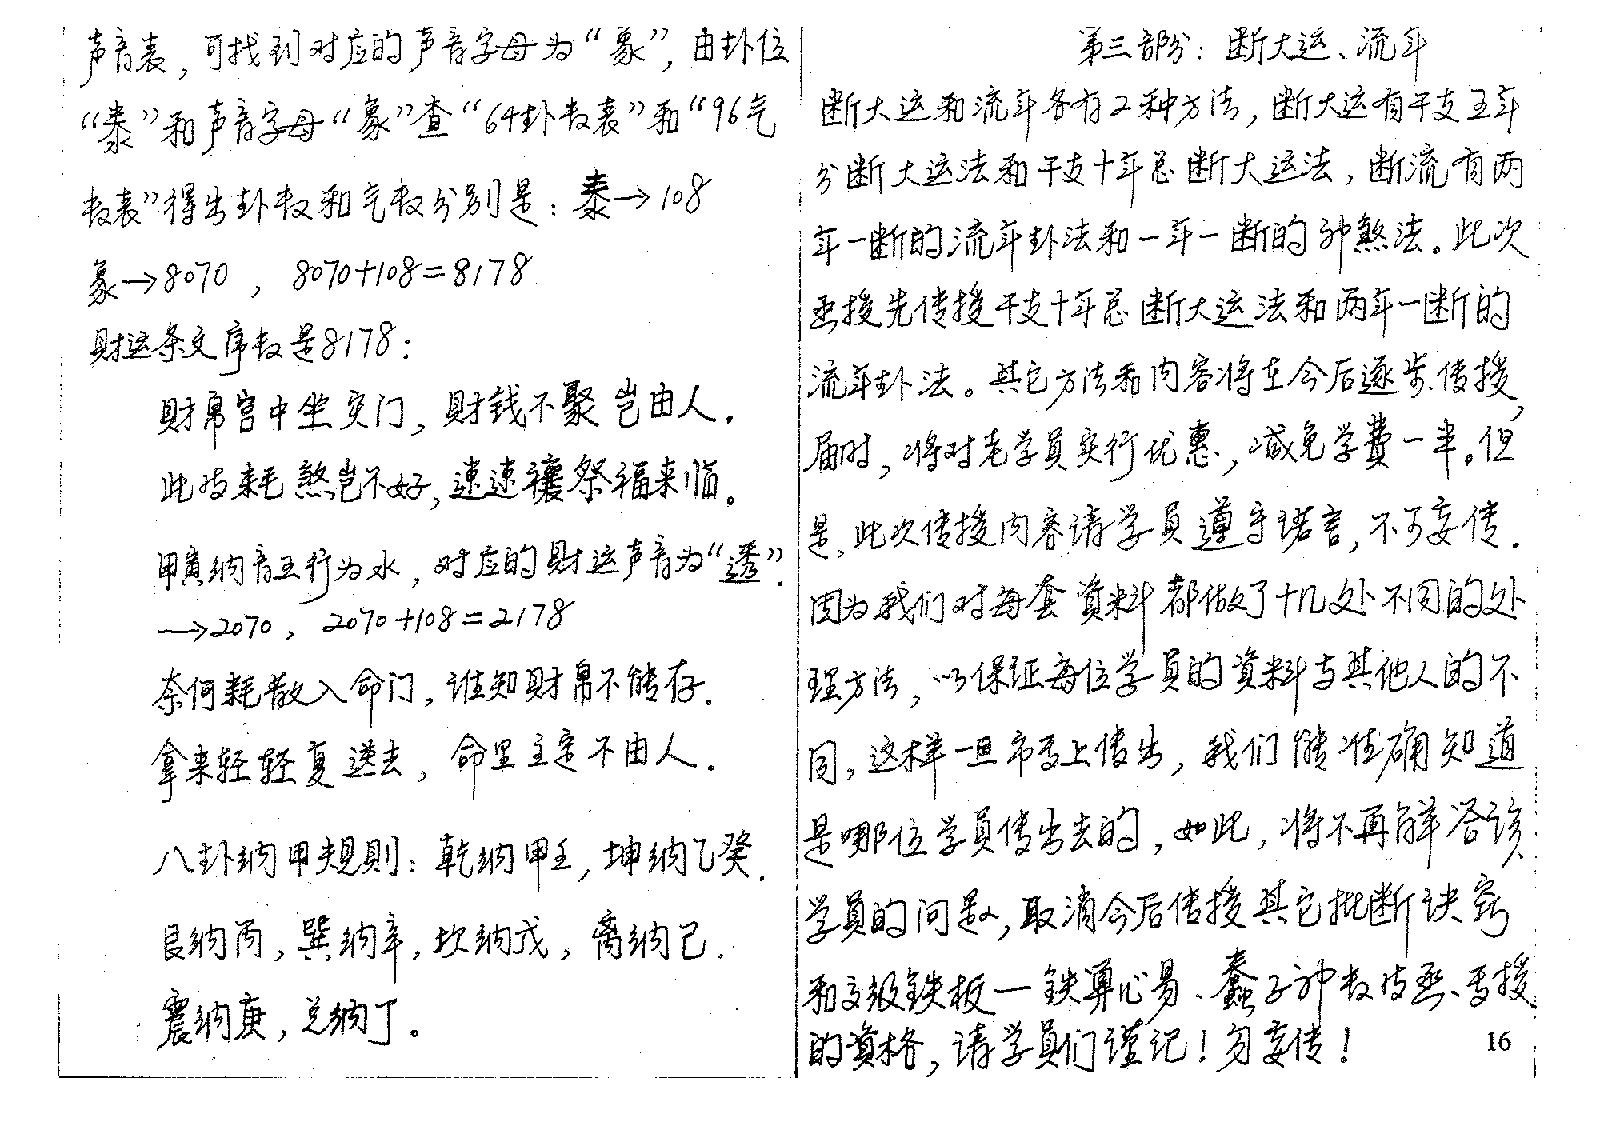 声音表，可找到对应的声音字母为“象”，由卦位
“泰”和声音字母“象”查“64卦数表”和“96气
数表”得出卦数和气数分别是：泰→108
象→8070，8070+108=8178
财运条文序数是8178：
财帛宫中坐突门，财钱不聚岂由人．
此岁耗煞岂不好，速速禳祭福来临。
甲寅纳音五行为水，对应的财运声音为“透”．
→2070，2070+108=2178
奈何耗散入命门，谁知财帛不能存．
拿来轻轻复送去，命里主定不由人．
八卦纳甲规则：乾纳甲壬，坤纳乙癸．
艮纳丙，巽纳辛，坎纳戊，离纳己．
震纳庚，兑纳丁。
第三部分：断大运、流年
断大运和流年各有2种方法，断大运有干支五年
分断大运法和干支十年总断大运法，断流有两
年一断的流年卦法和一年一断的神煞法。此次
函授先传授干支十年总断大运法和两年一断的
流年卦法。其它方法和内容将在今后逐步传授，
届时，将对老学员实行优惠，减免学费一半。但
是，此次传授内容请学员遵守诺言，不可妄传．
因为我们对每套资料都做了十几处不同的处
理方法，以保证每位学员的资料与其他人的不
同，这样一旦市面上传出，我们能准确知道
是哪位学员传出去的，如此，将不再解答该
学员的问题，取消今后传授其它批断诀窍
和高级铁板一铁算心易、蠢子神数皮授
的资格，请学员们谨记！勿妄传！
16